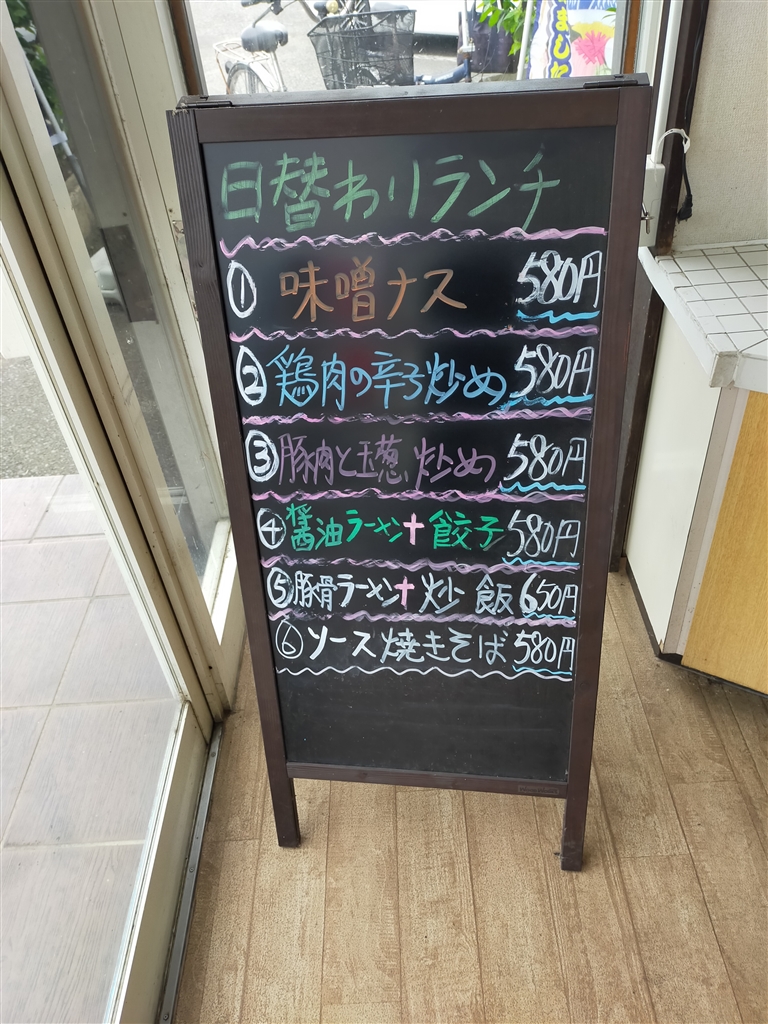 ました
日替わりランチ
① 味噌ナス 580円
② 鶏肉の辛子炒め 580円
③ 豚肉と玉葱炒め 580円
④ 醤油ラーメン+餃子 580円
⑤ 豚骨ラーメン+炒飯 650円
⑥ ソース焼きそば 580円